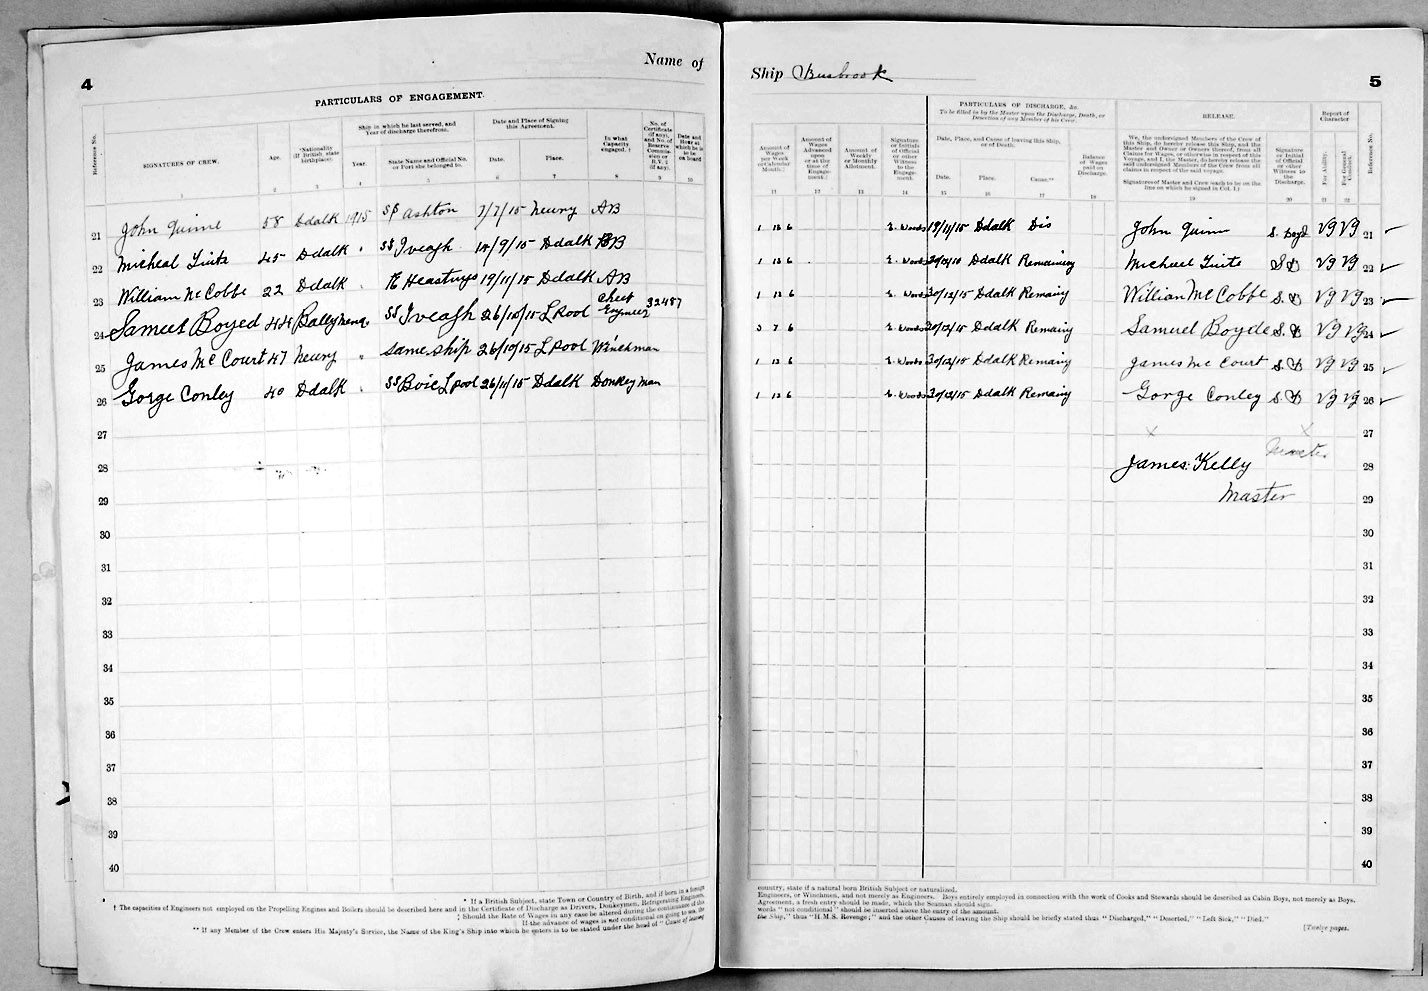 4
Name of
PARTICULARS OF ENGAGEMENT.
Reference No.
SIGNATURES OF CREW.
Age.
*Nationality (If British, state birthplace).
Ship in which he last served, and Year of discharge therefrom.
Year.
State Name and Official No. or Port she belonged to.
Date and Place of Signing this Agreement.
Date.
Place.
In what Capacity engaged. †
No. of Certificate (if any), and No. of Reserve Commission or R.V. 2 (if any).
Date and Hour at which he is to be on board
2 3 4 5 6 7 8 9 10
21 John Quinn 58 Ddalk 1915 SS Ashton 7/7/15 Newry AB
22 Micheal Tuite 45 Ddalk " SS Iveagh 14/9/15 Ddalk AB
23 William Mc Cobbe 22 Ddalk " 19/11/15 Ddalk AB
24 Samuel Boyed 44 Ballymena " SS Iveagh 26/10/15 L Pool Cheef Engineer 32487
25 James Mc Court 47 Newry " same ship 26/10/15 L Pool Winchman
26 Gorge Conley 40 Ddalk " SS Bvic L pool 26/11/15 Ddalk Donkey man
27
28
29
30
31
32
33
34
35
36
37
38
39
40
* If a British Subject, state Town or Country of Birth, and if born in a foreign
† The capacities of Engineers not employed on the Propelling Engines and Boilers should be described here and in the Certificate of Discharge as Drivers, Donkeymen, Refrigerating Engineers,
‡ Should the Rate of Wages in any case be altered during the continuance of this
|| If the advance of wages is not conditional on going to sea, the
** If any Member of the Crew enters His Majesty's Service, the Name of the King's Ship into which he enters is to be stated under the head of "Cause of leaving
Ship Busbrook
5
Amount of Wages per Week or Calendar Month.‡
Amount of Wages Advanced upon or at the time of Engagement.||
Amount of Weekly or Monthly Allotment.
Signature or Initials of Official or other Witness to the Engagement.
PARTICULARS OF DISCHARGE, &c.
To be filled in by the Master upon the Discharge, Death, or Desertion of any Member of his Crew.
Date, Place, and Cause of leaving this Ship, or of Death.
Date.
Place.
Cause.**
Balance of Wages paid on Discharge.
RELEASE.
We, the undersigned Members of the Crew of this Ship, do hereby release this Ship, and the Master and Owner or Owners thereof, from all Claims for Wages, or otherwise in respect of this Voyage, and I, the Master, do hereby release the said undersigned Members of the Crew from all claims in respect of the said voyage.
Signatures of Master and Crew (each to be on the line on which he signed in Col. 1.)
Signature or Initial of Official or other Witness to the Discharge.
Report of Character
For Ability.
For General Conduct.
Reference No.
11 12 13 14 15 16 17 18 19 20 21 22
1 12 6 E. Woods 19/11/15 Ddalk Dis John Quinn S. Boyd VG VG 21
1 12 6 E. Woods Ddalk Remaining Michael Tuite S B VG VG 22
1 12 6 E. Woods 30/12/15 Ddalk Remaing Willian Mc Cobbe S. B VG VG 23
3 7 6 E. Woods 30/12/15 Ddalk Remaing Samuel Boyde S. B VG VG 24
1 12 6 E. Woods 30/12/15 Ddalk Remaing James Mc Court S. B VG VG 25
1 12 6 E. Woods 30/12/15 Ddalk Remaing Gorge Conley S. B VG VG 26
x x 27
James Kelly Master 28
Master 29
30
31
32
33
34
35
36
37
38
39
40
country, state if a natural born British Subject or naturalized.
Engineers, or Winchmen, and not merely as Engineers. Boys entirely employed in connection with the work of Cooks and Stewards should be described as Cabin Boys, not merely as Boys.
Agreement, a fresh entry should be made, which the Seaman should sign.
words "not conditional" should be inserted above the entry of the amount.
the Ship," thus "H.M.S. Revenge;" and the other Causes of leaving the Ship should be briefly stated thus "Discharged," "Deserted," "Left Sick," "Died."
[Twelve pages.